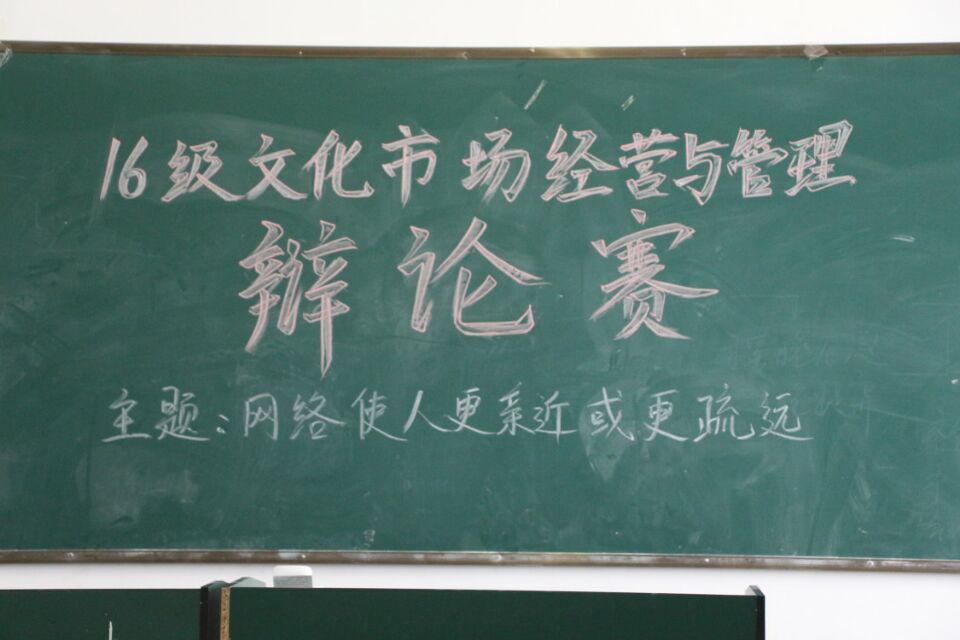 16级文化市场经营与管理
辩论赛
主题:网络使人更亲近或更疏远